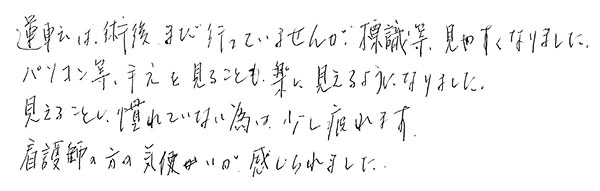 運転は、術後まだ行っていませんが、標識等、見やすくなりました。
パソコン等、手元を見ることも、楽に見えるようになりました。
見えることに、慣れていない為か、少し疲れます。
看護師の方の気使かいが感じられました。